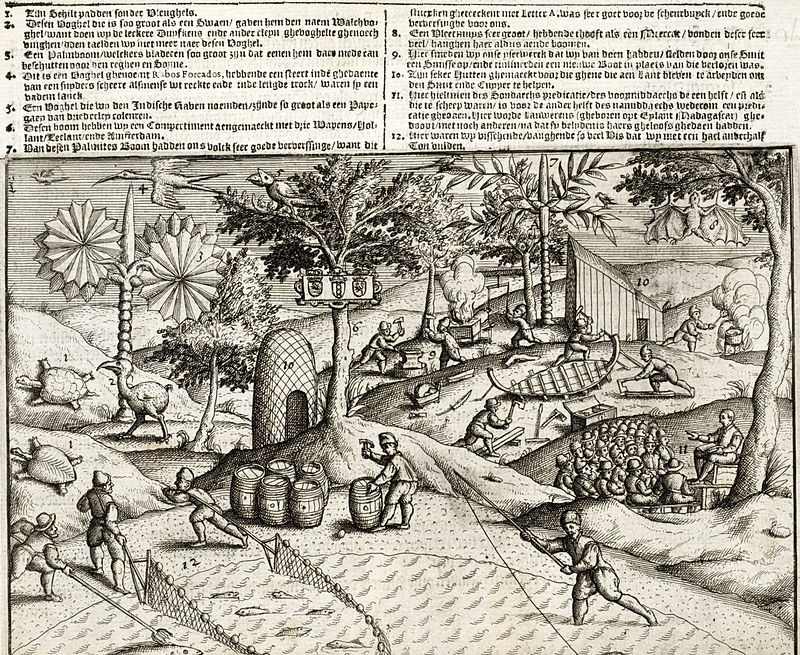 1. Zijn Schilt padden sonder Vleughels.
2. Desen Voghel die is soo groot als een Swaen/ gaven hem den naem Walchvo-
ghel/want doen wy de leckere Duyfkens ende ander cleyn ghevoghelte ghenoech
vinghen/doen taelden wy niet meer naer desen Voghel.
3. Een Palmboom/welckers bladeren soo groot zijn dat eenen hem daer mede can
beschutten voor den reghen en Sonne.
4. Dit is een Voghel ghenoemt Rabos Forcados, hebbende een steert inde ghedaente
van een snyders scheere alsmense wt reckte ende inde lengde trock/ waren sy een
vadem lanck.
5. Een Voghel die wy den Indische Raven noemden/zijnde so groot als een Pape-
gaey van coleuren.
6. Desen boom hebben wy een Compertiment aengemaeckt met drie Wapens/Hol-
lant/Zeelant/ende Amsterdam.
7. Van desen Palmites Boom hadden ons volck seer goede verversinge/want die
stucxken gheteeckent met Letter A. was seer goet voor de scheurbuyck/ende goede
verversinghe voor ons.
8. Een Vleermuys seer groot/ hebbende thooft als een Meercat/ vonden deser seer
veel/ hanghen haer aldus aende boomen.
9. Hier smeden wy onse yserwerck dat wy van doen hadden/ stelden door onse Smit
een Smisse op/ende timmerden een nieuwe Boot in plaets van die verloren was.
10. Zijn seker Hutten ghemaeckt voor die ghene die aen Lant bleven te arbeyden om
den Smit ende Cuyper te helpen.
11. Hier hielmen des Sondachs Predicatie/des voormiddachs de een helft/ en als
die te scheep waren/ is voor de ander helft des namiddachs wederom een predi-
catie ghedaen. Hier worde Laurerens (gheboren opt Eylant Madagascar) ghe-
doopt/met noch anderen na dat sy belydenis haers gheloofs ghedaen hadden.
12. Hier waren wy visschende/vanghende so veel Vis dat wy met een hael anderhalf
Ton vulden.
4
5
7
8
3
10
6
9
1
2
10
1
11
12